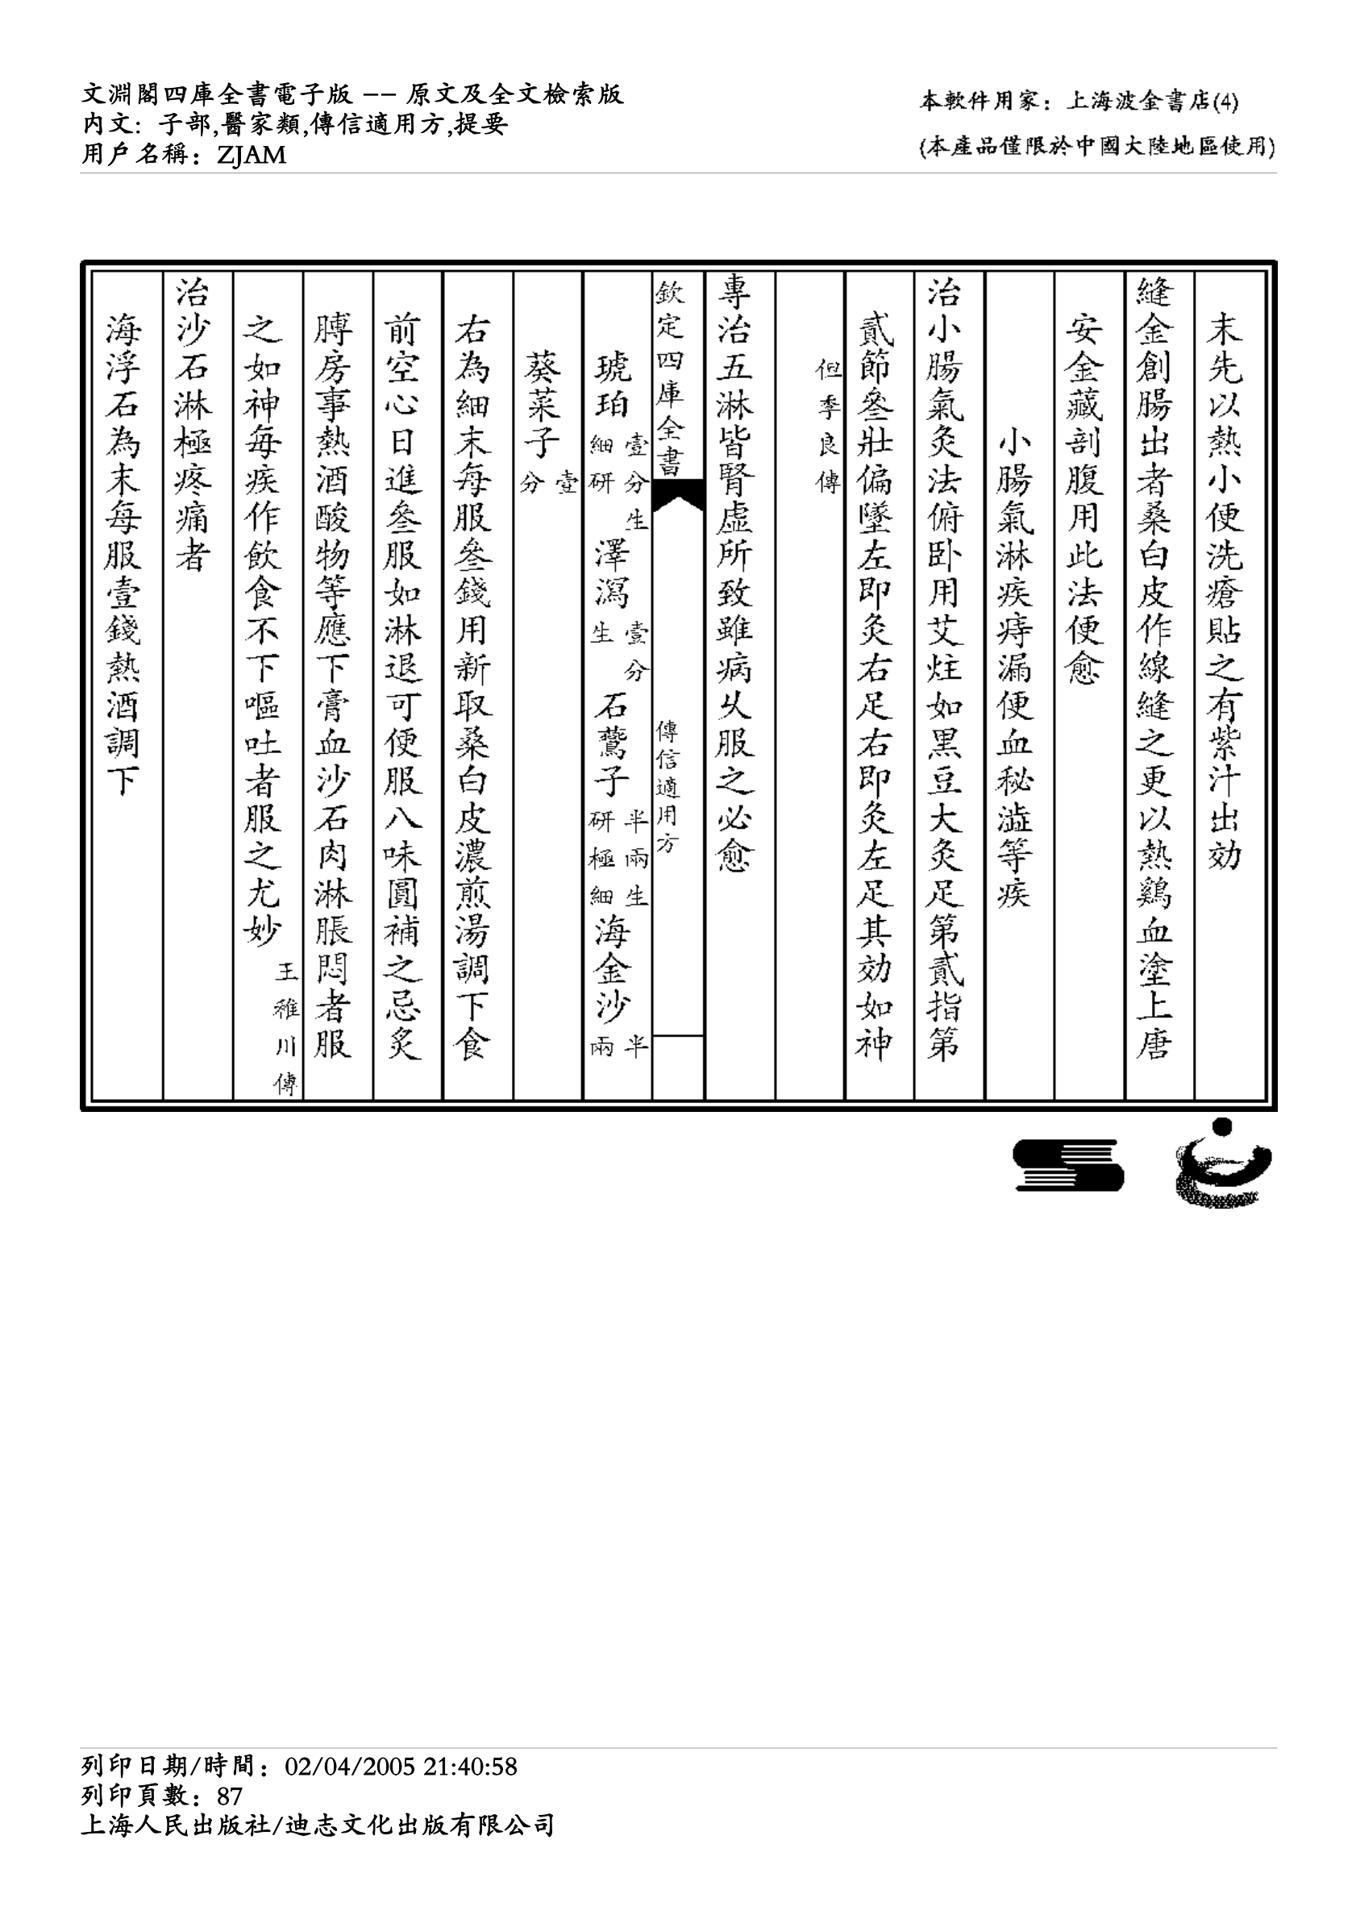 文淵閣四庫全書電子版 -- 原文及全文檢索版
內文: 子部,醫家類,傳信適用方,提要
用戶名稱：ZJAM
本軟件用家：上海波金書店(4)
(本產品僅限於中國大陸地區使用)
末先以熱小便洗瘡貼之有紫汁出効
縫金創腸出者桑白皮作線縫之更以熱鷄血塗上唐
安金藏剖腹用此法便愈
小腸氣淋疾痔漏便血秘澁等疾
治小腸氣灸法俯卧用艾炷如黑豆大灸足第貳指第
貳節叄壯偏墜左即灸右足右即灸左足其効如神
但季良傳
專治五淋皆腎虛所致雖病久服之必愈
欽定四庫全書 傳信適用方
琥珀壹分生細研 澤瀉壹分生 石鷰子半兩生研極細 海金沙半兩
葵菜子壹分
右為細末每服叄錢用新取桑白皮濃煎湯調下食
前空心日進叄服如淋退可便服八味圓補之忌炙
膊房事熱酒酸物等應下膏血沙石肉淋脹悶者服
之如神每疾作飲食不下嘔吐者服之尤妙王稚川傳
治沙石淋極疼痛者
海浮石為末每服壹錢熱酒調下
列印日期/時間：02/04/2005 21:40:58
列印頁數：87
上海人民出版社/迪志文化出版有限公司